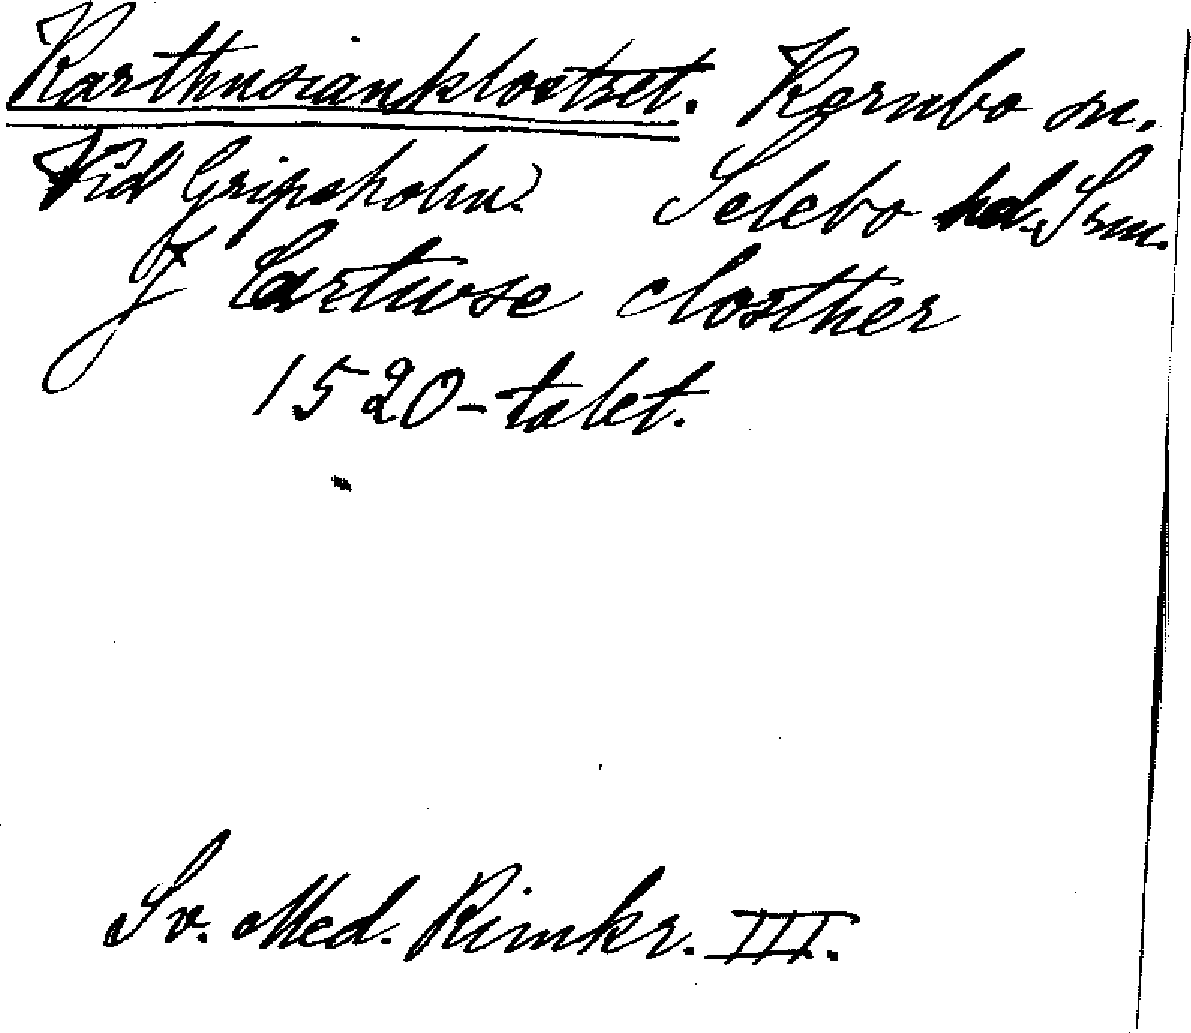 Karthusianklostret. Kernbo sn.
Vid Gripsholm. Selebo hd. Srm.
J Cartuse closther
1520-talet.
Sv. Med. Rimkr. III.